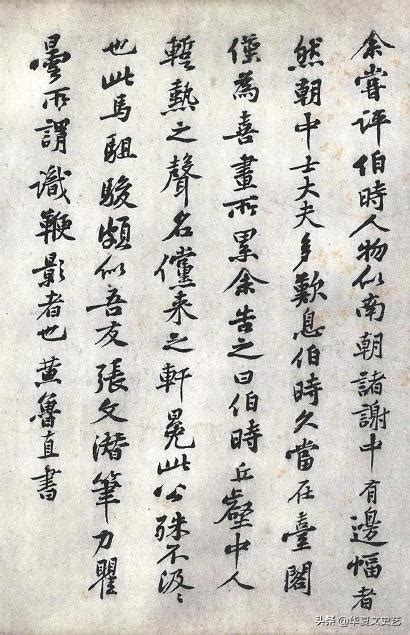 余嘗評伯時人物似南朝諸謝中有邊幅者
然朝中士大夫多歎息伯時久當在臺閣
僅為喜畫所累余告之曰伯時丘壑中人
暫熱之聲名儻来之軒冕此公殊不汲〻
也此馬駔駿頗似吾友張文潛筆力瞿
曇所謂識鞭影者也黃魯直書
头条@华夏文史艺